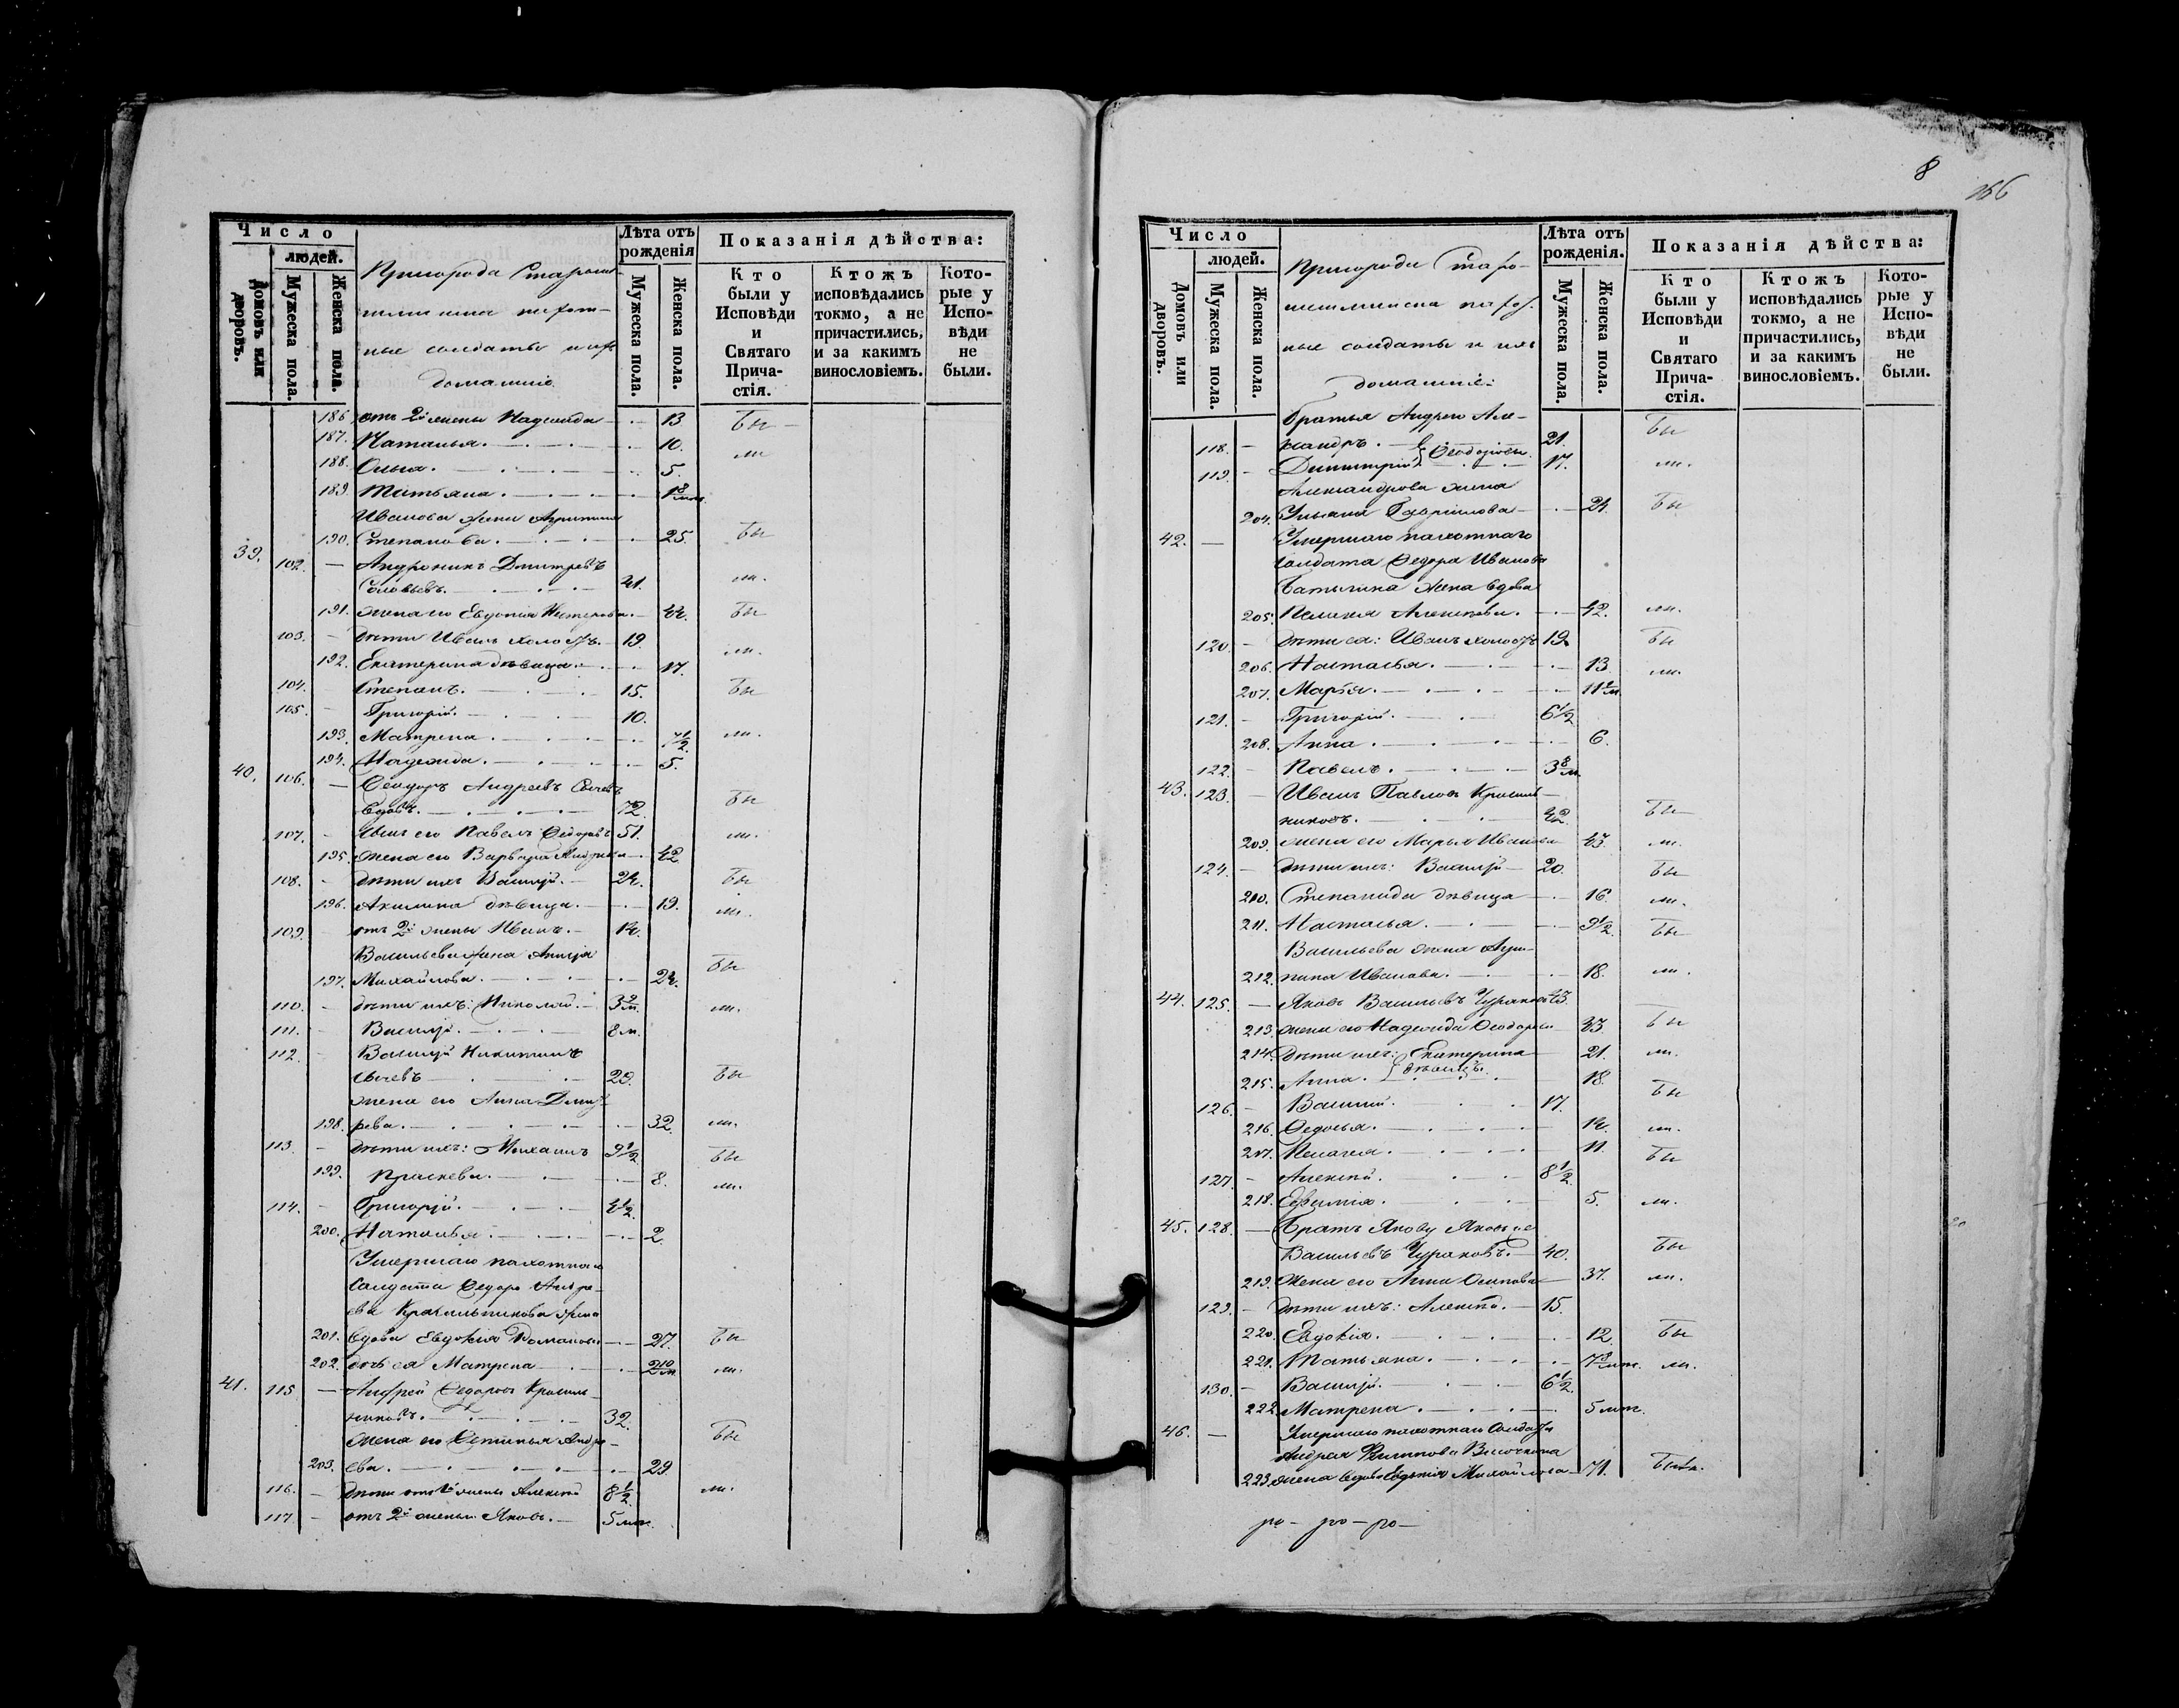 Число
людей.
Домовъ или дворовъ.
Мужеска пола.
Женска пола.
Пригорода Старош-
минска пахот-
ные солдаты и ихъ
домашніе
Лѣта отъ рожденія
Мужеска пола.
Женска пола.
Показанія дѣйства:
Кто были у Исповѣди и Святаго Прича-стія.
Ктожъ исповѣдались токмо, а не причастились, и за какимъ винословіемъ.
Кото-рые у Испо-вѣди не были.
186 отъ 2й жены Надежда 13 бы
187. Наталья. 10. ли
188. Ольга. 5.
189. Татьяна.
Иванова жена Агрипина
190. Степанова. 25. бы
39. 102. Андроникъ Дмитревъ
Соловьевъ. 41. ли.
191. жена его Евдокія 44. бы
103. дѣти Иванъ холостъ. 19.
192. Екатерина дѣвица. 17. ли.
104. Степанъ. 15. бы
105. Григорій. 10.
193. Матрена. 7½. ли.
194. Надежда. 5.
40. 106. Ѳеодоръ Андреевъ Сычевъ
вдовъ. 72. бы
107. сынъ его Павелъ Ѳедоровъ 51. ли.
195. жена его Варвара 42
108. дѣти ихъ Василій. 24. бы
196. Акилина дѣвица. 19. ли.
109. отъ 2й жены Иванъ. 14.
Васильева жена
197. Михайлова. 24. бы
110. дѣти ихъ: Николай. ли.
111. Василій. 8 м.
112. Василій Никитинъ
Сычевъ 29. бы
жена его Анна Дмит-
198. рева. 32. ли.
113. дѣти ихъ: Михаилъ 9½ бы
199. Праскева. 8. ли.
114. Григорій. 4½.
200. Наталья. 2.
Умершаго пахотнаго
солдата Ѳедора Андре-
ева Красильникова жена
201. вдова Евдокія Романова 27. бы
202. дочь ея Матрена ли.
41. 115 Андрей Ѳедоровъ Красиль-
никовъ. 32.
жена его Устинья Андре- бы
203. ева. 29.
116. дѣти отъ 1й жены Алексѣй 8½. ли.
117 отъ 2й жены Яковъ. 5 мѣс.
8
156
Число
людей.
Домовъ или дворовъ.
Мужеска пола.
Женска пола.
Пригорода Старо-
шешминска пахот.
ные солдаты и ихъ
домашніе:
Лѣта отъ рожденія.
Мужеска пола.
Женска пола.
Показанія дѣйства:
Кто были у Исповѣди и Святаго Прича-стія.
Ктожъ исповѣдались токмо, а не причастились, и за какимъ винословіемъ.
Кото-рые у Испо-вѣди не были.
братья Андрею Але- бы
118. ксандръ. 21.
119. Димитрій Ѳеодоровы. 17. ли.
Александрова жена
204. Ульяна Гаврилова 21. бы
42. Умершаго пахотнаго
солдата Ѳедора Иванова
Батыгина жена вдова
205. Пелагея Алексѣева. 42. ли.
120. дѣти ея: Иванъ холостъ 19. бы
206. Наталья. 13 ли.
207. Марья.
121. Григорій. 6½
208. Анна. 6.
122. Павелъ.
43. 123. Иванъ Павловъ Красиль-
никовъ. 42. бы
209. жена его Марья Иванова 43. ли.
124. дѣти ихъ: Василій 20. бы
210. Степанида дѣвица 16. ли.
211. Наталья. 9½. бы
Васильева жена Агри-
212. пина Иванова. 18. ли.
44. 125. Яковъ Васильевъ Чураковъ 43.
213. жена его Надежда Ѳеодорова 43. бы
214. дѣти ихъ: Екатерина 21. ли.
215. Анна. дѣвицы. 18.
126. Василій. 17. бы
216. Ѳедосья. 14. ли.
217. Пелагея. 11. бы
127. Алексѣй. 8½.
218. Евѳимія. 5. ли.
45. 128. Братъ Якову Яковъ же
Васильевъ Чураковъ. 40. бы
219. жена его Анна Осипова 37. ли.
129. дѣти ихъ: Алексѣй. 15.
220. Евдокія. 12 бы
221. Татьяна. ли.
130. Василій. 6½.
222. Матрена. 5 мѣс.
46. Умершаго пахотнаго солдата
Андрея Филипова
223. жена вдова Евдокія Михайлова 71. была.
ро- ро- ро-